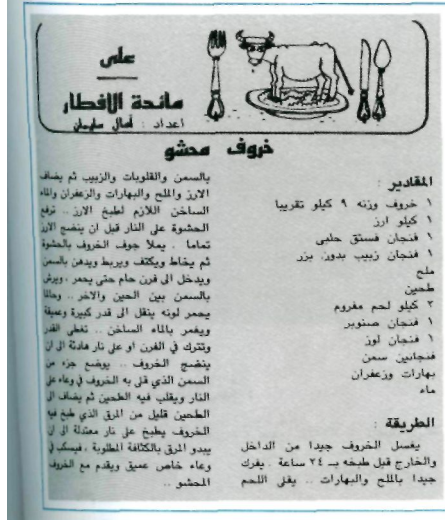 على
مائدة الافطار
اعداد : آمال سليمان
خروف محشو
المقادير :
١ خروف وزنه ٩ كيلو تقريبا
١ كيلو ارز
١ فنجان فستق حلبى
١ فنجان زبيب بدون بزر
ملح
طحين
٢ كيلو لحم مفروم
١ فنجان صنوبر
١ فنجان لوز
فنجانين سمن
بهارات وزعفران
ماء
الطريقة :
يغسل الخروف جيدا من الداخل
والخارج قبل طبخه بـ ٢٤ ساعة . يفرك
جيدا بالملح والبهارات .. يقلى اللحم
بالسمن والقلوبات والزبيب ثم يضاف
الارز والملح والبهارات والزعفران والماء
الساخن اللازم لطبخ الارز .. ترفع
الحشوة على النار قبل ان ينضج الارز
تماما . يملأ جوف الخروف بالحشوة
ثم يخاط ويكتف ويربط ويدهن بالسمن
ويدخل الى فرن حام حتى يحمر ، ويرش
بالسمن بين الحين والاخر .. وحالما
يحمر لونه ينقل الى قدر كبيرة وعميقة
ويغمر بالماء الساخن .. تغطى القدر
وتترك في الفرن او على نار هادئة الى ان
ينضج الخروف .. يوضع جزء من
السمن الذي قلى به الخروف في وعاء على
النار ويقلب فيه الطحين ثم يضاف الى
الطحين قليل من المرق الذي طبخ فيه
الخروف يطبخ على نار معتدلة الى ان
يبدو المرق بالكثافة المطلوبة ، فيسكب في
وعاء خاص عميق ويقدم مع الخروف
المحشو ..